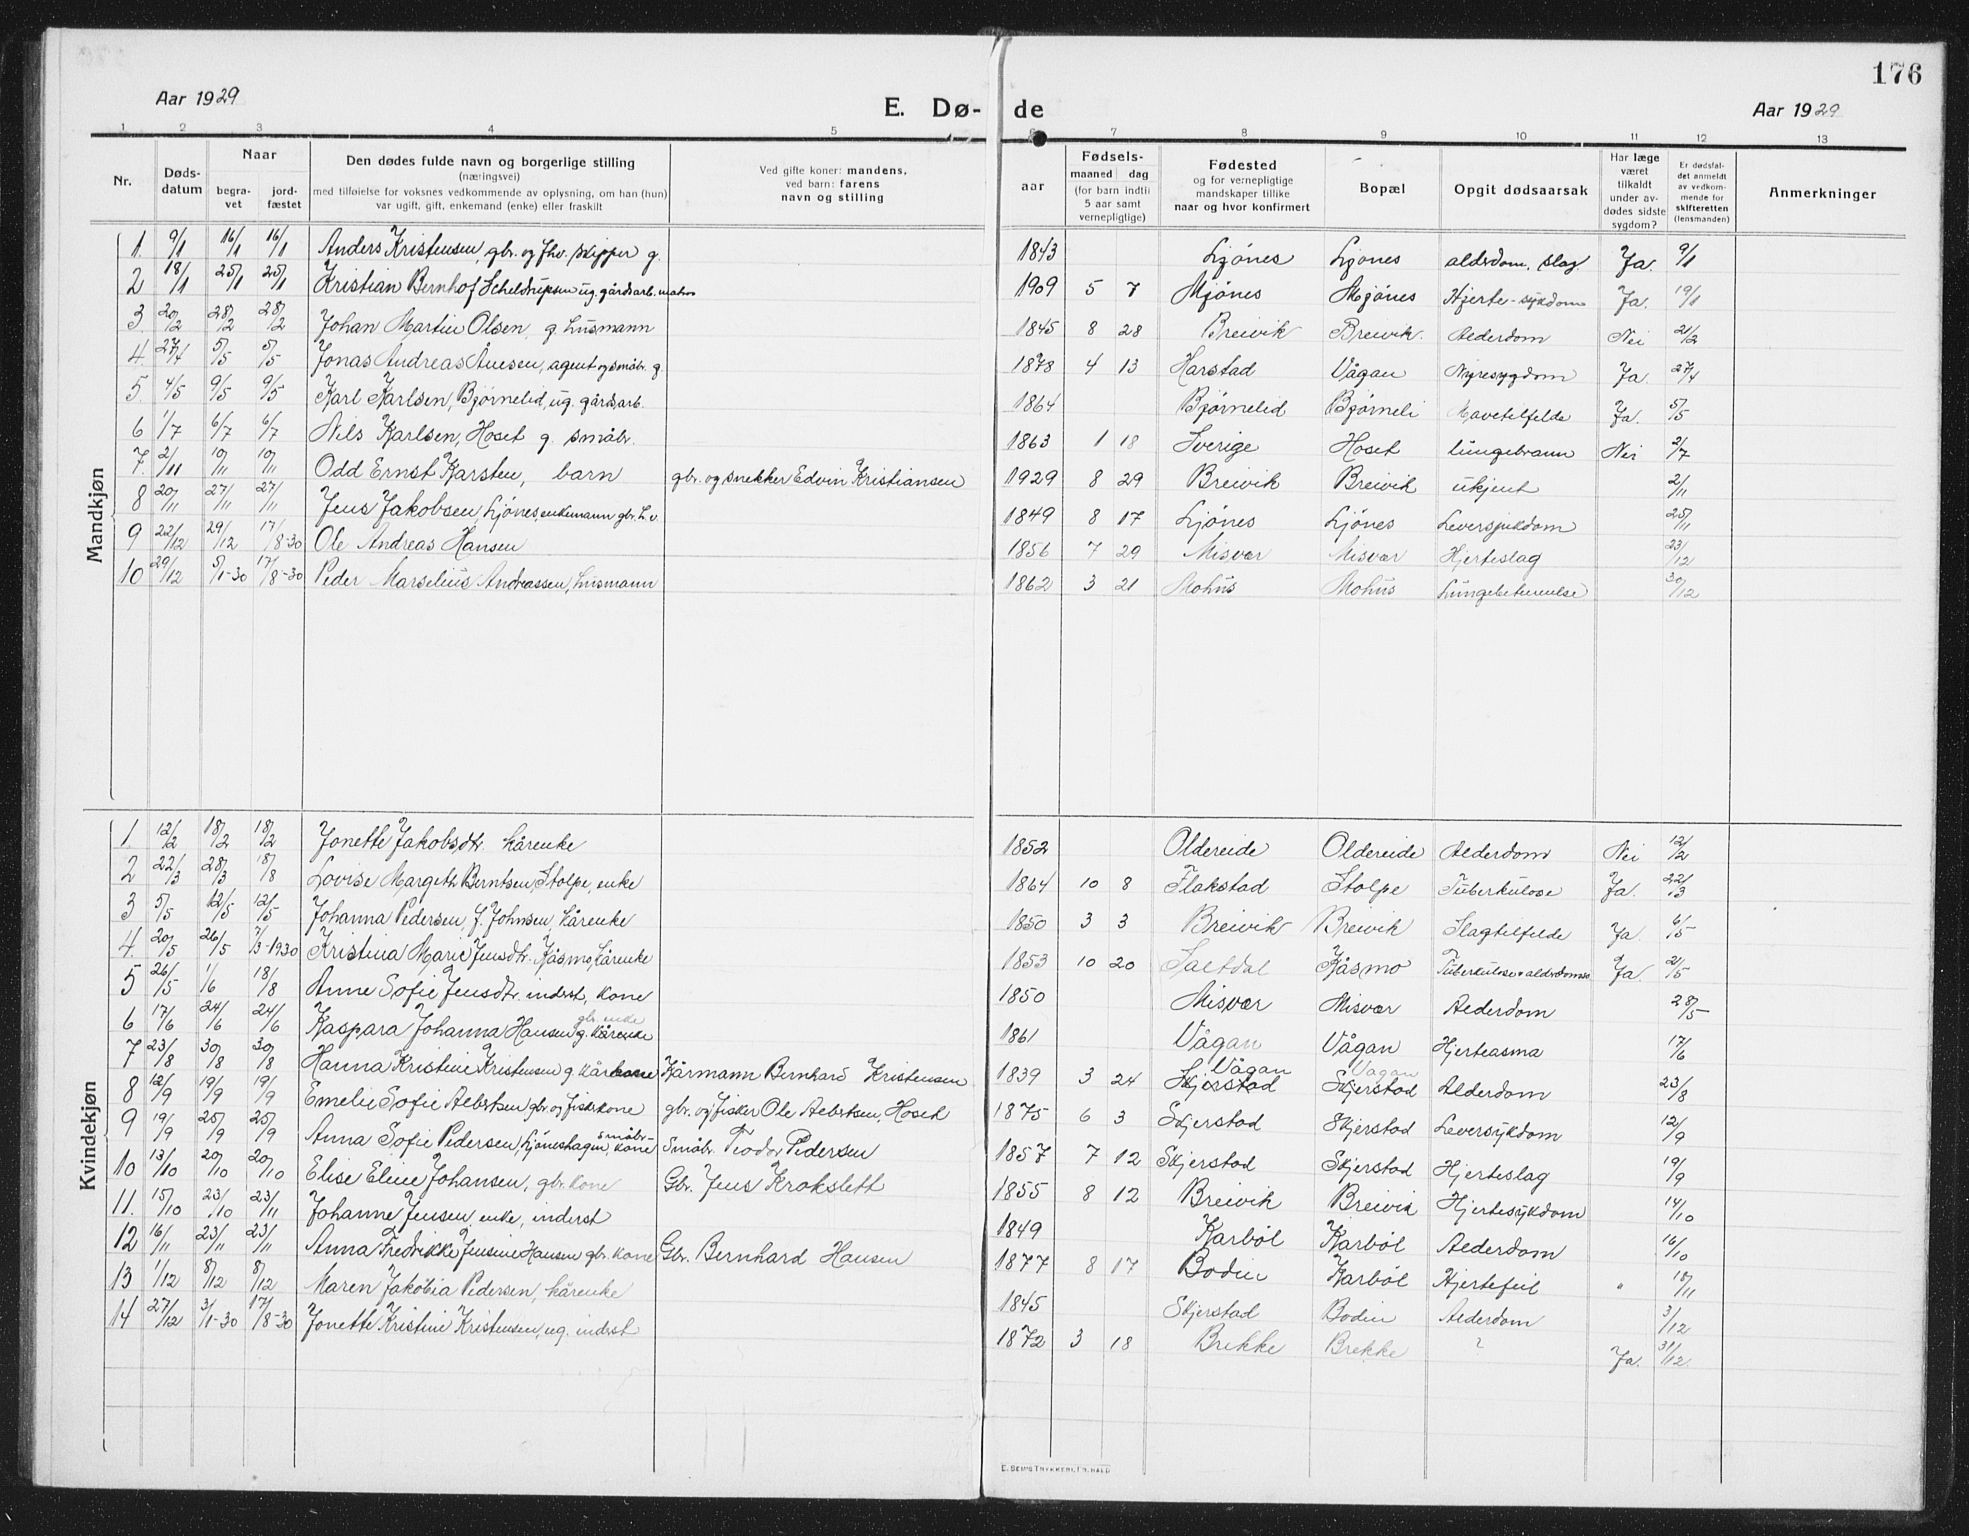 176
Aar 1929 E. Dø- de Aar 1929
1 2 3 4 5 6 7 8 9 10 11 12 13
Nr.
Døds-
datum
Naar
begra-
vet
jord-
fæstet
Den dødes fulde navn og borgerlige stilling
(næringsvei)
med tilføielse for voksnes vedkommende av oplysning, om han (hun)
var ugift, gift, enkemand (enke) eller fraskilt
Ved gifte koner: mandens,
ved barn: farens
navn og stilling
aar
Fødsels-
maaned dag
(for barn indtil
5 aar samt
vernepligtige)
Fødested
og for vernepligtige
mandskaper tillike
naar og hvor konfirmert
Bopæl
Opgit dødsaarsak
Har læge
været
tilkaldt
under av-
dødes sidste
sygdom?
Er dødsfal-
det anmeldt
av vedkom-
mende for
skifteretten
(lensmanden)
Anmerkninger
Mandkjøn
1. 9/1 16/1 16/1 Anders Kristensen, gbr. og fhv. skipper g. 1843 Ljønes Ljønes alderdom, slag. Ja. 9/1
2 18/1 25/1 25/1 Kristian Bernhof Scheldrupsen ug. gårdsarb. matros 1909 5 7 Mjønes Mjønes Hjerte-sykdom Ja. 19/1
3. 20/2 28/2 28/2 Johan Martin Olsen, g. husmann 1845 8 28 Breivik Breivik. Alderdom Nei 21/2
4. 27/4 5/5 5/5 Jonas Andreas Ånesen, agent og småbr. g. 1878 4 13 Harstad Vågan Nyresygdom Ja. 27/4
5. 4/5 9/5 9/5 Karl Karlsen, Bjørnelid, ug. gårdsarb. 1864 Bjørnelid Bjørneli Mavetilfelde Ja. 5/5
6 1/7 6/7 6/7 Nils Karlsen, Hoset g. småbr. 1863 1 18 Sverige Hoset lungebrann Nei 2/7
7. 2/11 10/11 10/11 Odd Ernst Karsten, barn gbr. og snekker Edvin Kristiansen 1929 8 29 Breivik Breivik ukjent 2/11
8 20/11 27/11 27/11 Jens Jakobsen, Ljønes, enkemann gbr. 1849 8 17 Ljønes Ljønes Leversjukdom 25/11
9 22/12 29/12 17/8-30 Ole Andreas Hansen 1856 7 29 Misvær Misvær Hjerteslag 23/12
10 29/12 5/1-30 17/8-30 Peder Marselius Andreassen, husmann 1862 3 21 Mohus Mohus Lungebetennelse 30/12
Kvindekjøn
1. 12/2 18/2 18/2 Jonette Jakobsdtr. kårenke 1852 Oldereide Oldereide Alderdom Nei 12/2
2 22/3 28/3 18/8 Lovise Margeth Berntsen, Stolpe, enke 1864 10 8 Flakstad Stolpe Tuberkulose Ja. 22/3
3 5/5 12/5 12/5 Johanna Pedersen, f. Johnsen, kårenke 1850 3 3 Breivik Breivik Slagtilfelde Ja. 6/5
4. 20/5 26/5 7/3-1930 Kristina Marie Jensdtr. Kåsmo, kårenke 1853 10 20 Saltdal Kåsmo Tuberkulose + alderdomss. Ja. 21/5
5 26/5 1/6 18/8 Anne Sofie Jensdtr. inderst, kone 1850 Misvær Misvær Alderdom 28/5
gbr. enke
6 17/6 24/6 24/6 Kaspara Johanna Hansen g. kårenke 1861 Vågan Vågan Hjerteasma 17/6
Vågan Vågan
7 23/8 30/8 30/8 Hanna Kristine Kristensen g kårkone Kårmann Bernhard Kristensen 1839 3 24 Skjerstad Skjerstad Alderdom 23/8
8 12/9 19/9 19/9 Emelie Sofie Albertsen gbr. og fiskerkone gbr. og fisker Ole Albertsen, Hoset 1875 6 3 Skjerstad Skjerstad Leversykdom 12/9
småbr-
9 19/9 25/9 25/9 Anna Sofie Pedersen, Ljøneshagen, kone Småbr. Teodor Pedersen 1857 7 12 Skjerstad Skjerstad Hjerteslag 19/9
10 13/10 20/10 20/10 Elise Eline Johansen, gbr. kone Gbr. Jens Krokslett 1855 8 12 Breivik Breivik Hjertesykdom 14/10
11. 15/10 23/10 23/11 Johanne Jensen, enke, inderst 1849 Karbøl Karbøl Alderdom 16/10
12 16/11 23/11 23/11 Anna Fredrikke Jensine Hansen gbr. kone Gbr. Bernhard Hansen 1877 8 17 Bodin Karbøl Hjertefeil " 18/11
13 1/12 8/12 8/12 Maren Jakobia Pedersen, kårenke 1845 Skjerstad Bodin Alderdom 3/12
14 27/12 3/1-30 17/8-30 Jonette Kristine Kristensen, ug. inderst 1872 3 18 Brekke Brekke ? Ja. 31/12
E. SEM'S TRYKKERI, FR.HALD